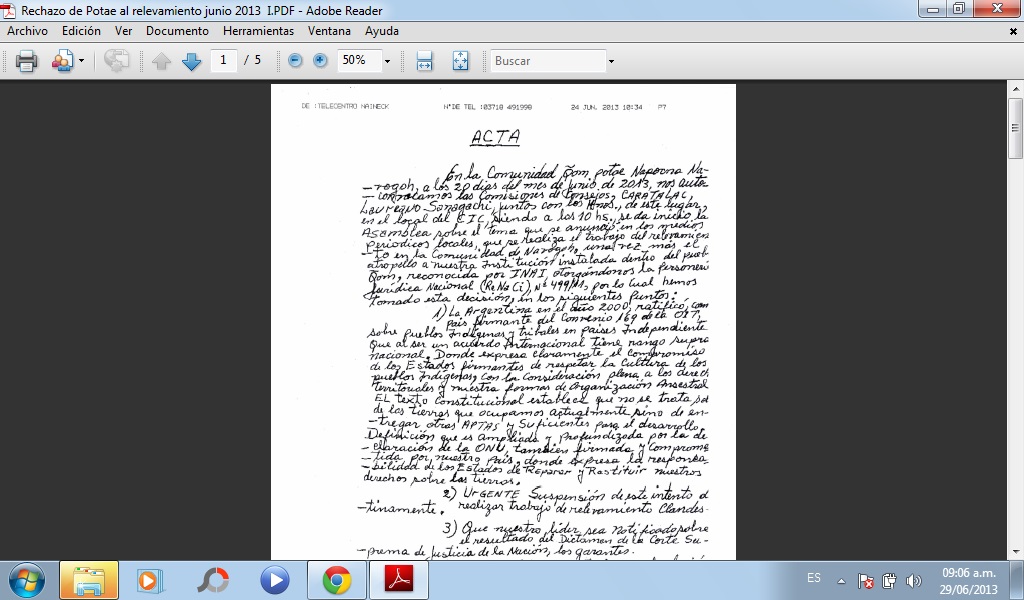 Rechazo de Potae al relevamiento junio 2013 I.PDF - Adobe Reader
Archivo Edición Ver Documento Herramientas Ventana Ayuda
1 / 5 50% Buscar
DE :TELECENTRO NAINECK N°DE TEL :03718 491998 24 JUN. 2013 10:34 P7
ACTA
En la Comunidad Qom potae Napocna Na-
-rogoh, a los 20 dias del mes de Junio de 2013, nos auto
-convocamos las Comisiones de Consejos, CARATALAC,
Laureano Sanagachi, juntos con los Hnos., de este lugar,
en el local del CIC, siendo a los 10 hs., se da inicio la
Asamblea sobre el tema que se anuncio en los medios
periodicos locales, que se realiza el trabajo del relevamien
-to en la Comunidad de Narogoh, una vez más el
atropello a nuestra Institución instalada dentro del pueb
Qom, reconocida por INAI, otorgándonos la personeri
Jurídica Nacional (ReNaCi), Nº 499/11, por lo cual hemos
tomado esta decisión, en los siguientes puntos:
1) La Argentina en el año 2000, ratifico, com
país firmante del Convenio 169 de la OIT,
sobre pueblos Indígenas y tribales en países Independiente
Que al ser un acuerdo Internacional tiene rango supra
nacional. Donde expresa claramente el compromiso
de los Estados firmantes de respetar la Cultura de los
pueblos Indígenas, con la Consideración plena a los derech
territoriales y nuestra formas de Organización Ansestral
EL texto Constitucional establece que no se trata so
de las tierras que ocupamos actualmente sino de en-
-tregar otras APTAS y Suficientes para el desarrollo.
Definición que es ampliada y profundizada por la de
-claración de la ONU, tambien firmada y comprome
-tida por nuestro país, donde expresa la responsa-
-bilidad de los Estados de Reparar y Rastituir nuestros
derechos sobre las tierras.
2) URGENTE Suspensión de este intento d
realizar trabajo de relevamiento Clandes-
-tinamente.
3) Que nuestro líder sea Notificado sobre
el resultado del Dictamen de la Corte Su-
-prema de Justicia de la Nación, los garantes.
ES 09:06 a.m.
29/06/2013